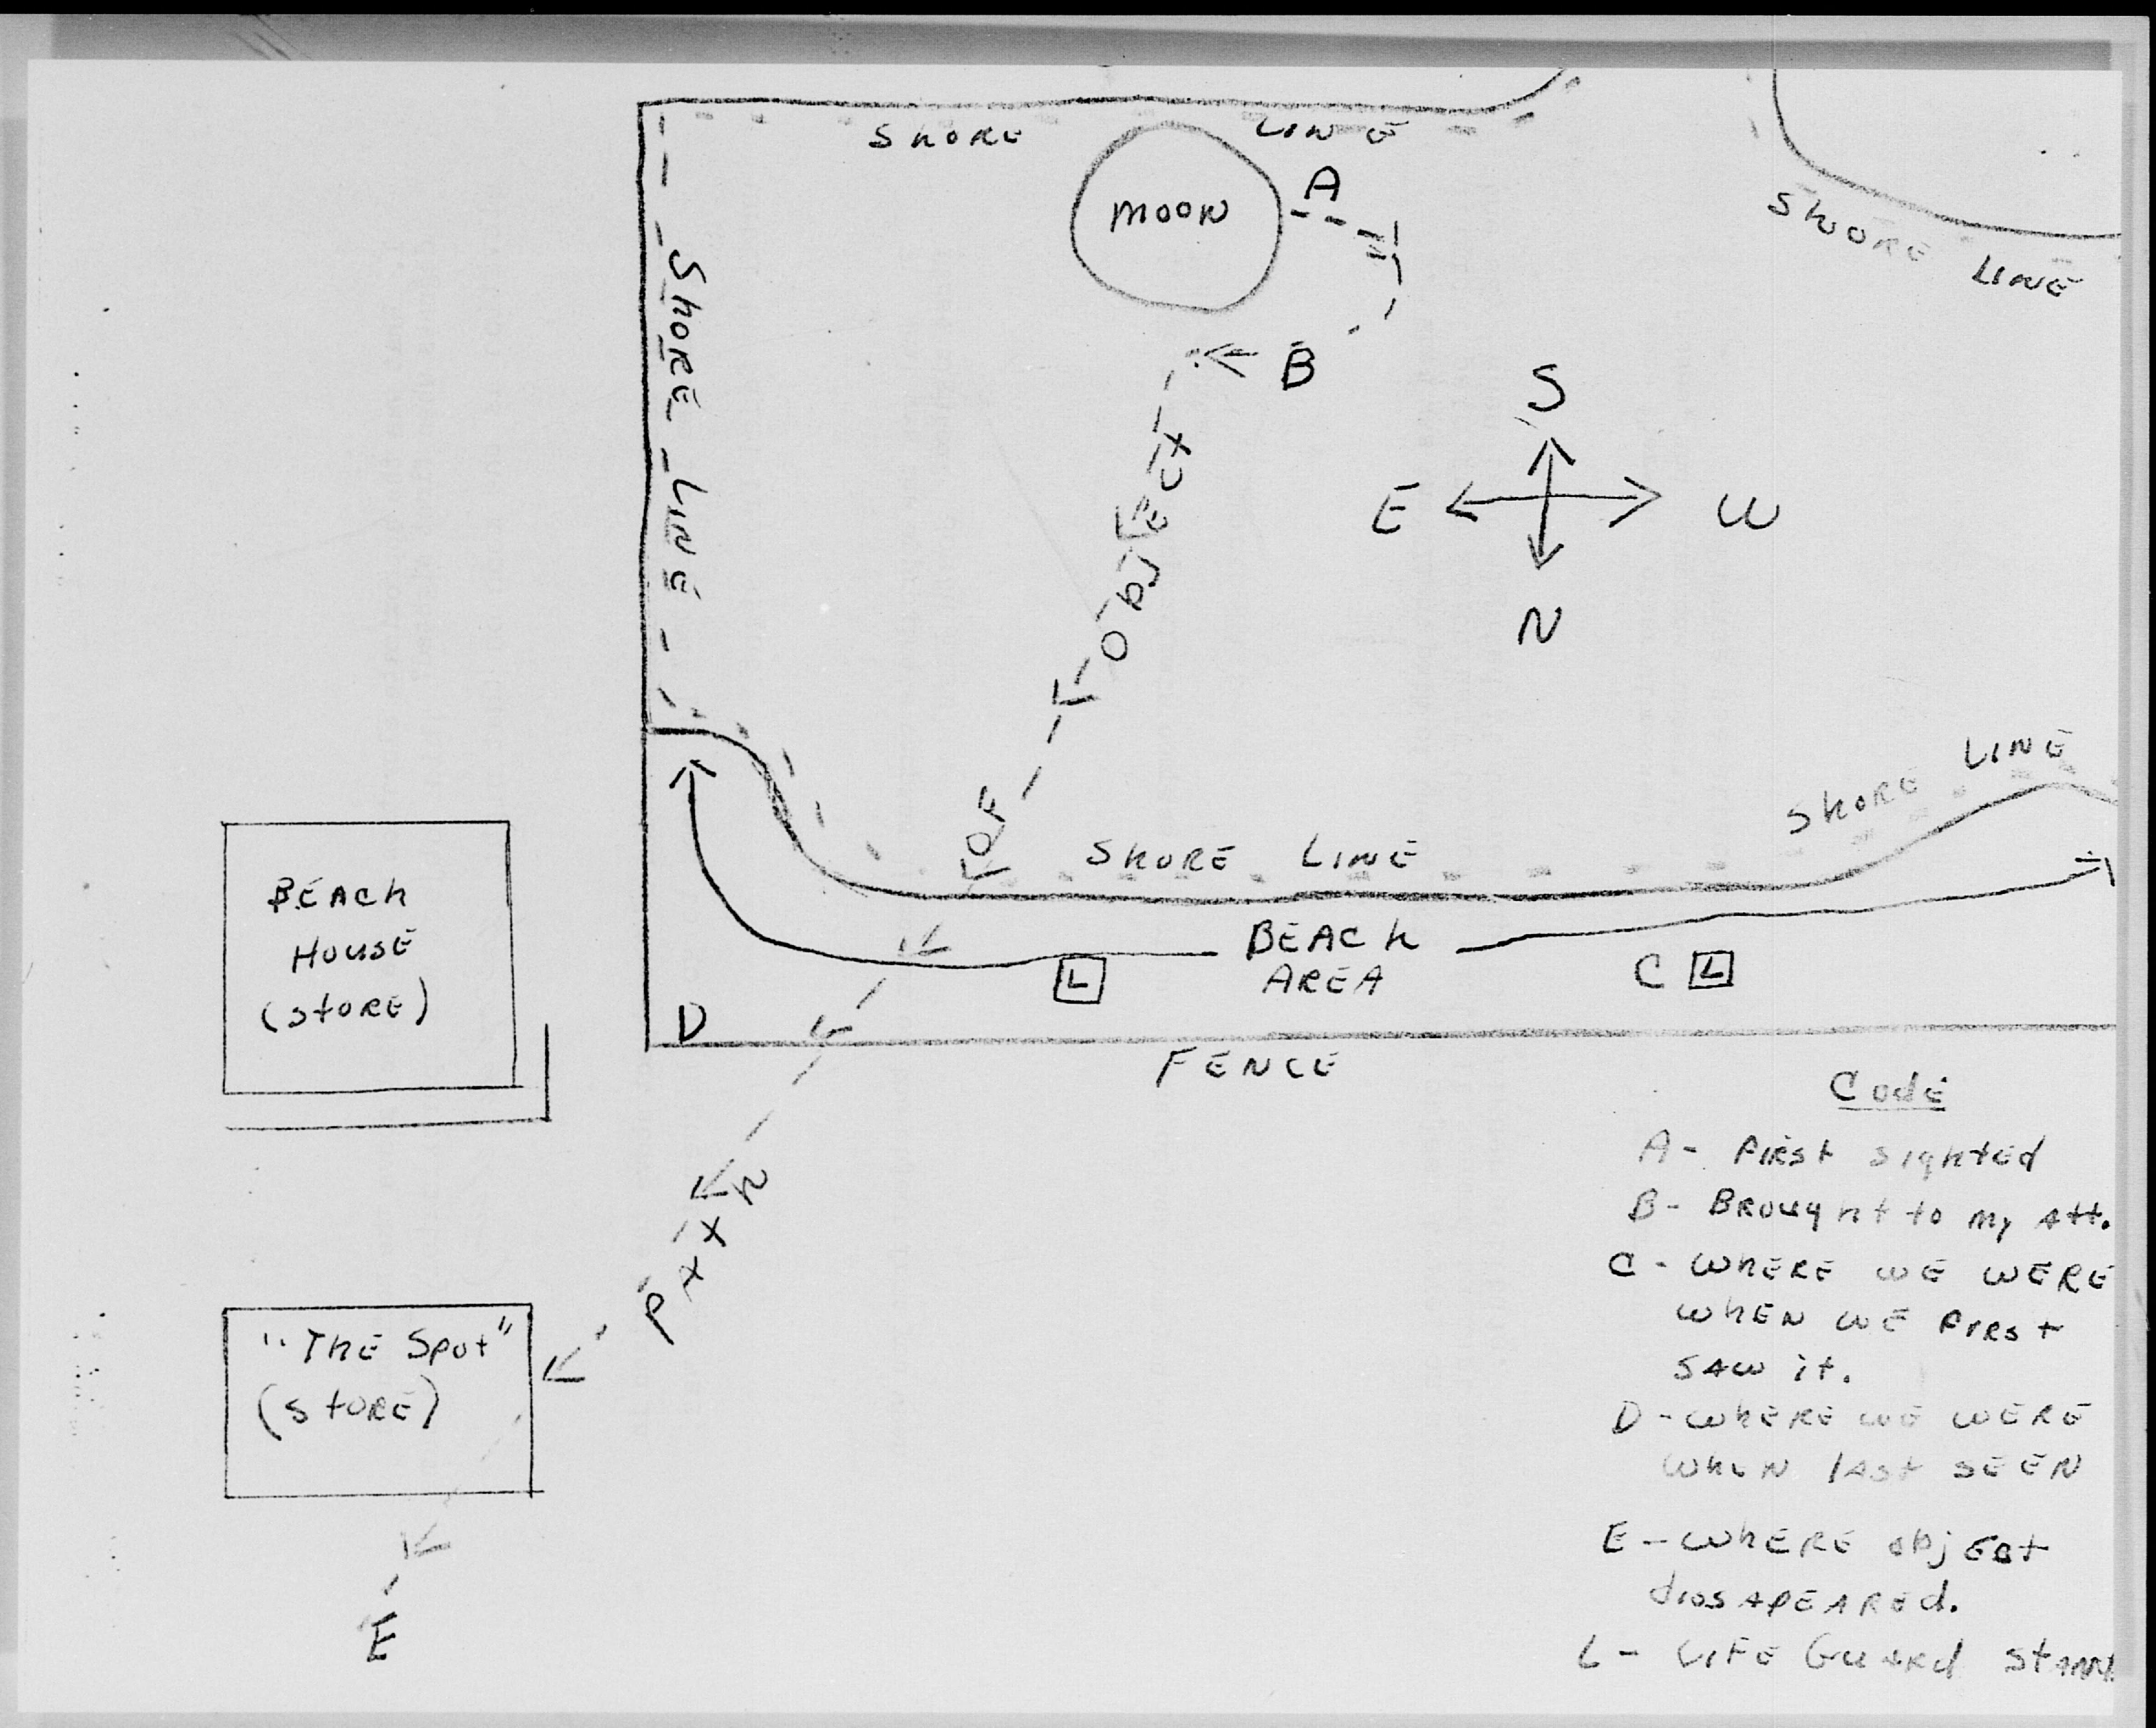 SHORE LINE
MOON
A
SHOORE LINE
SHORE LINE
B
S
E W
N
PATH OF OBJECT
SHORE LINE
SHORE LINE
BEACH
AREA
L
C L
D
FENCE
BEACH
HOUSE
(STORE)
"THE Spot"
(STORE)
E
Code
A - FIRST SIGHTED
B - BROUGHT to My Att.
C - WHERE WE WERE
WHEN WE FIRST
SAW it.
D - WHERE WE WERE
WHEN LAST SEEN
E - WHERE objEct
diosAPEARED.
L - LIFE GUARD STAND